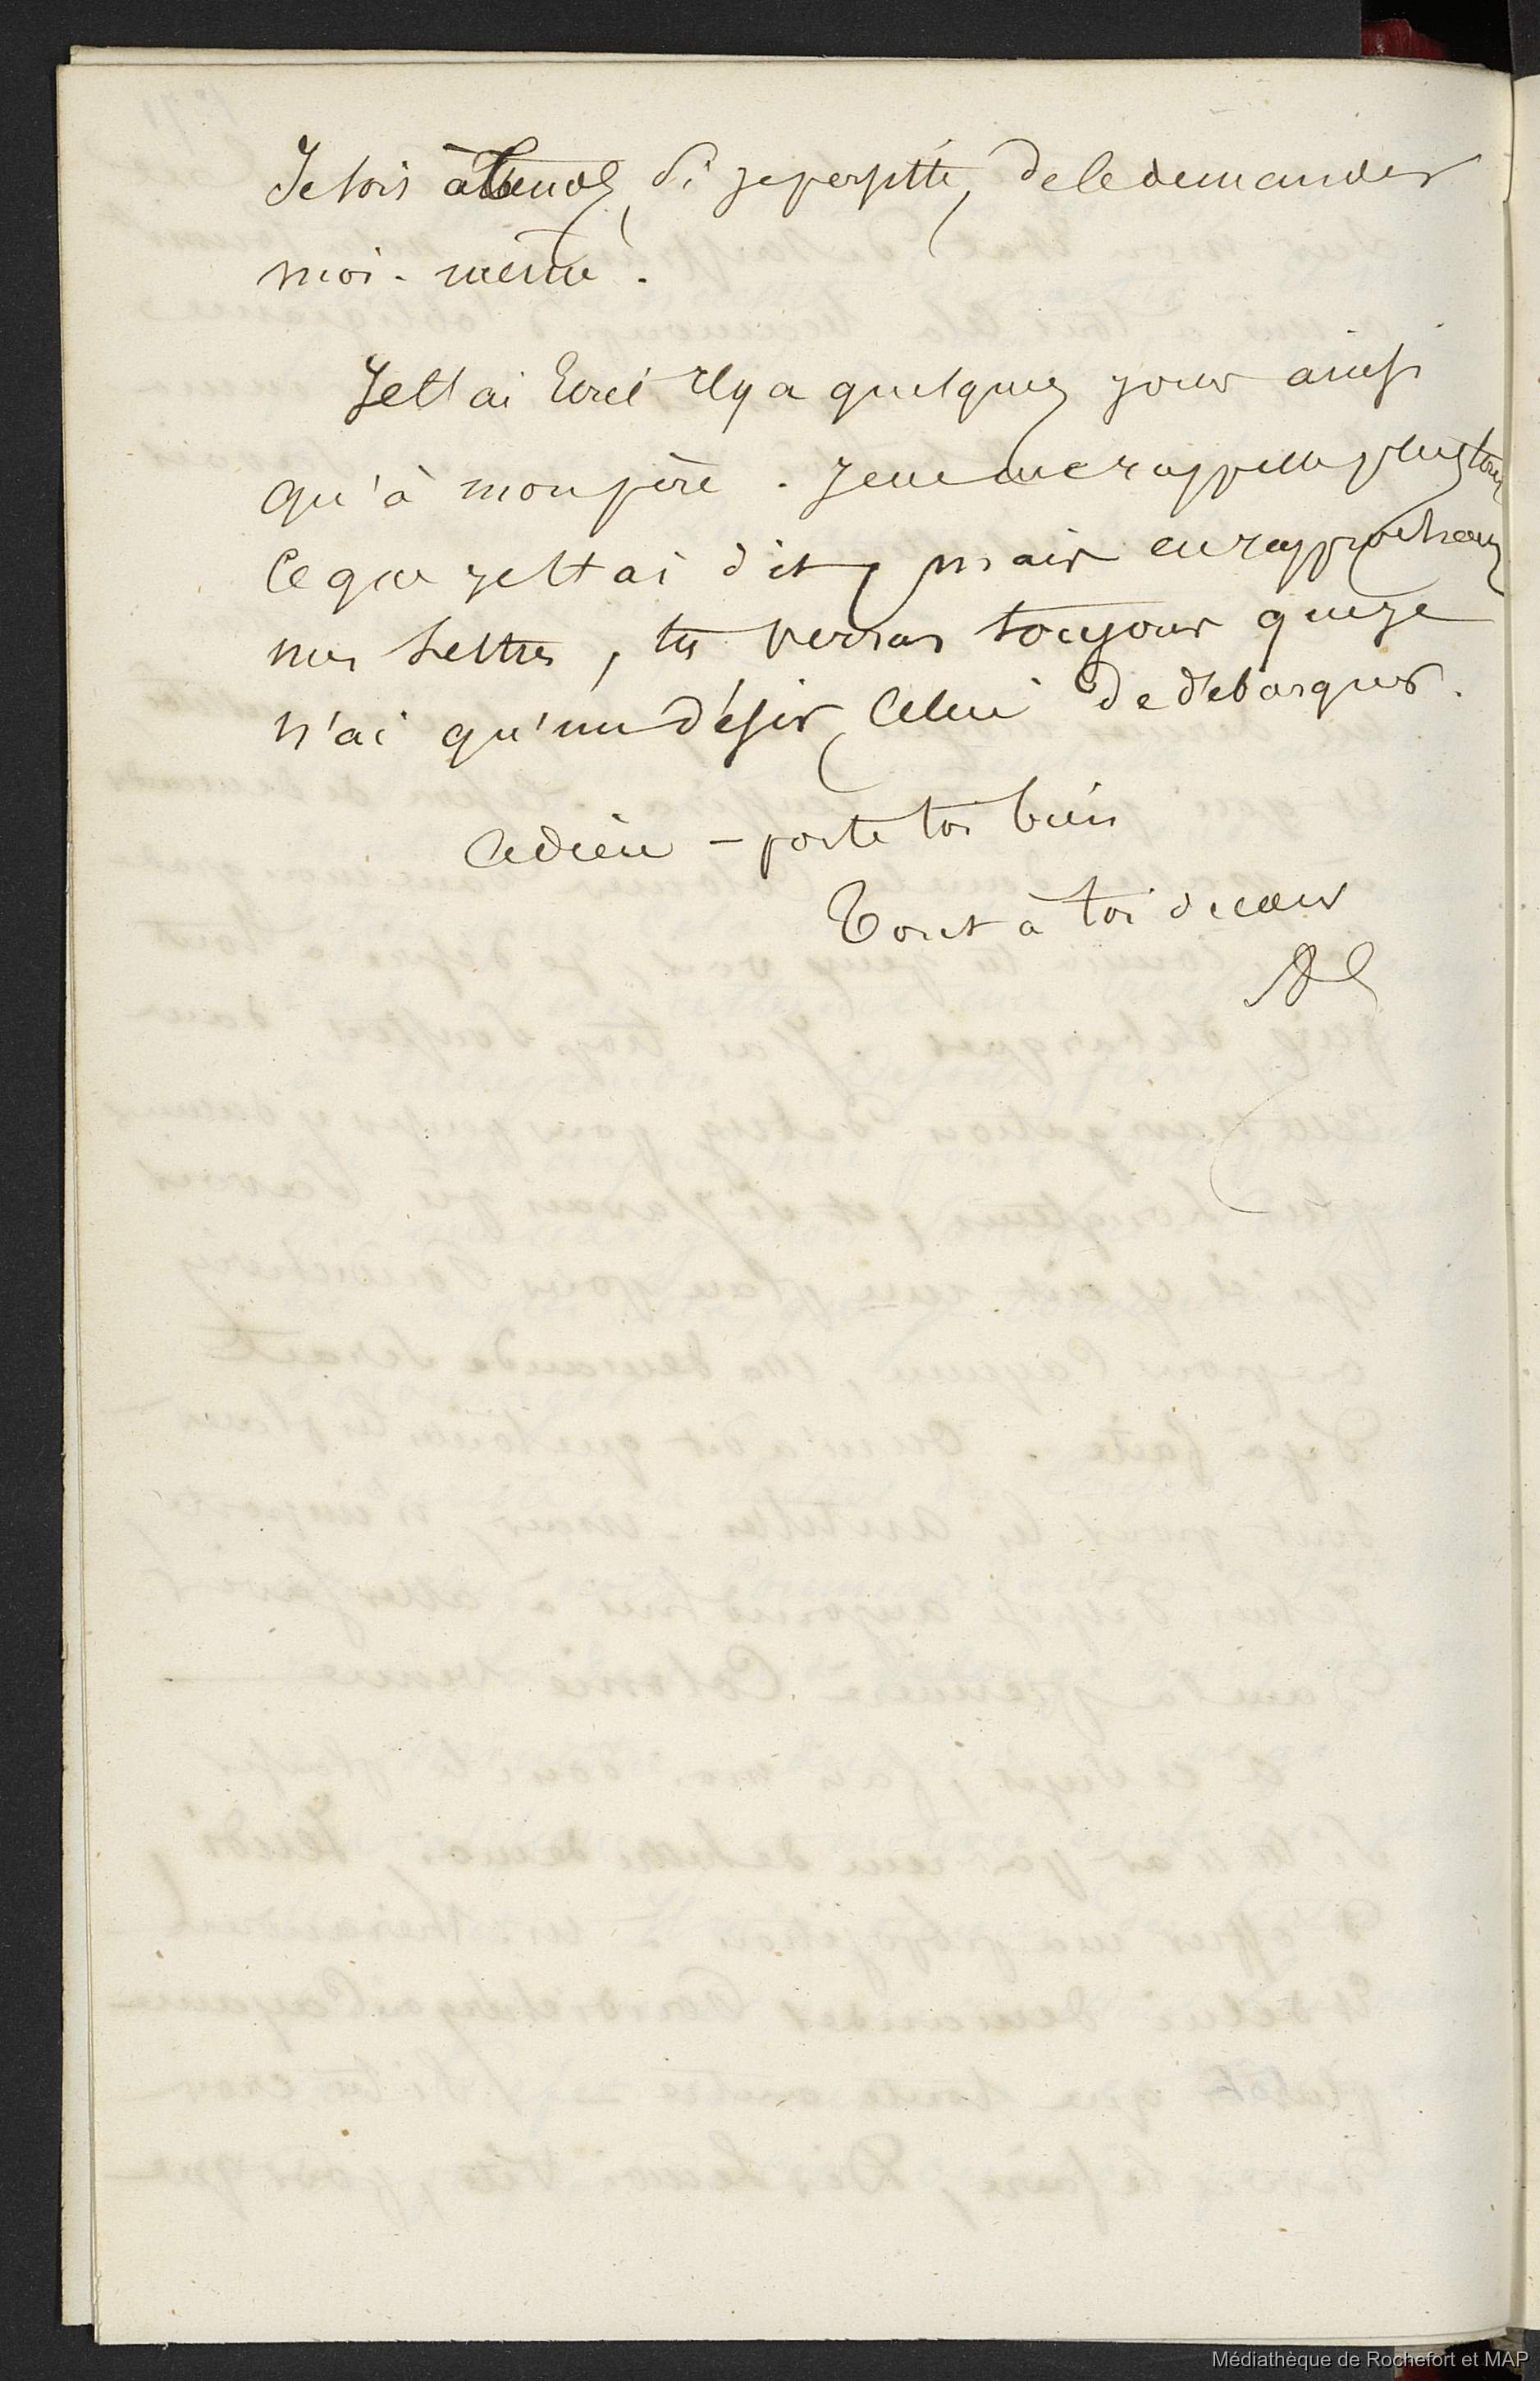 Je sois à temps, si je persiste, de le demander
moi-même.
Je t'ai Ecrit Il y a quelques jours ainsi
qu'à mon père. Je ne me rappelle plus tout
Ce que je t'ai dit, mais en rapprochant
mes Lettres, tu verras toujours que je
n'ai qu'un désir, Celui de débarquer.
Adieu - porte toi bien
Tout à toi de cœur
Médiathèque de Rochefort et MAP